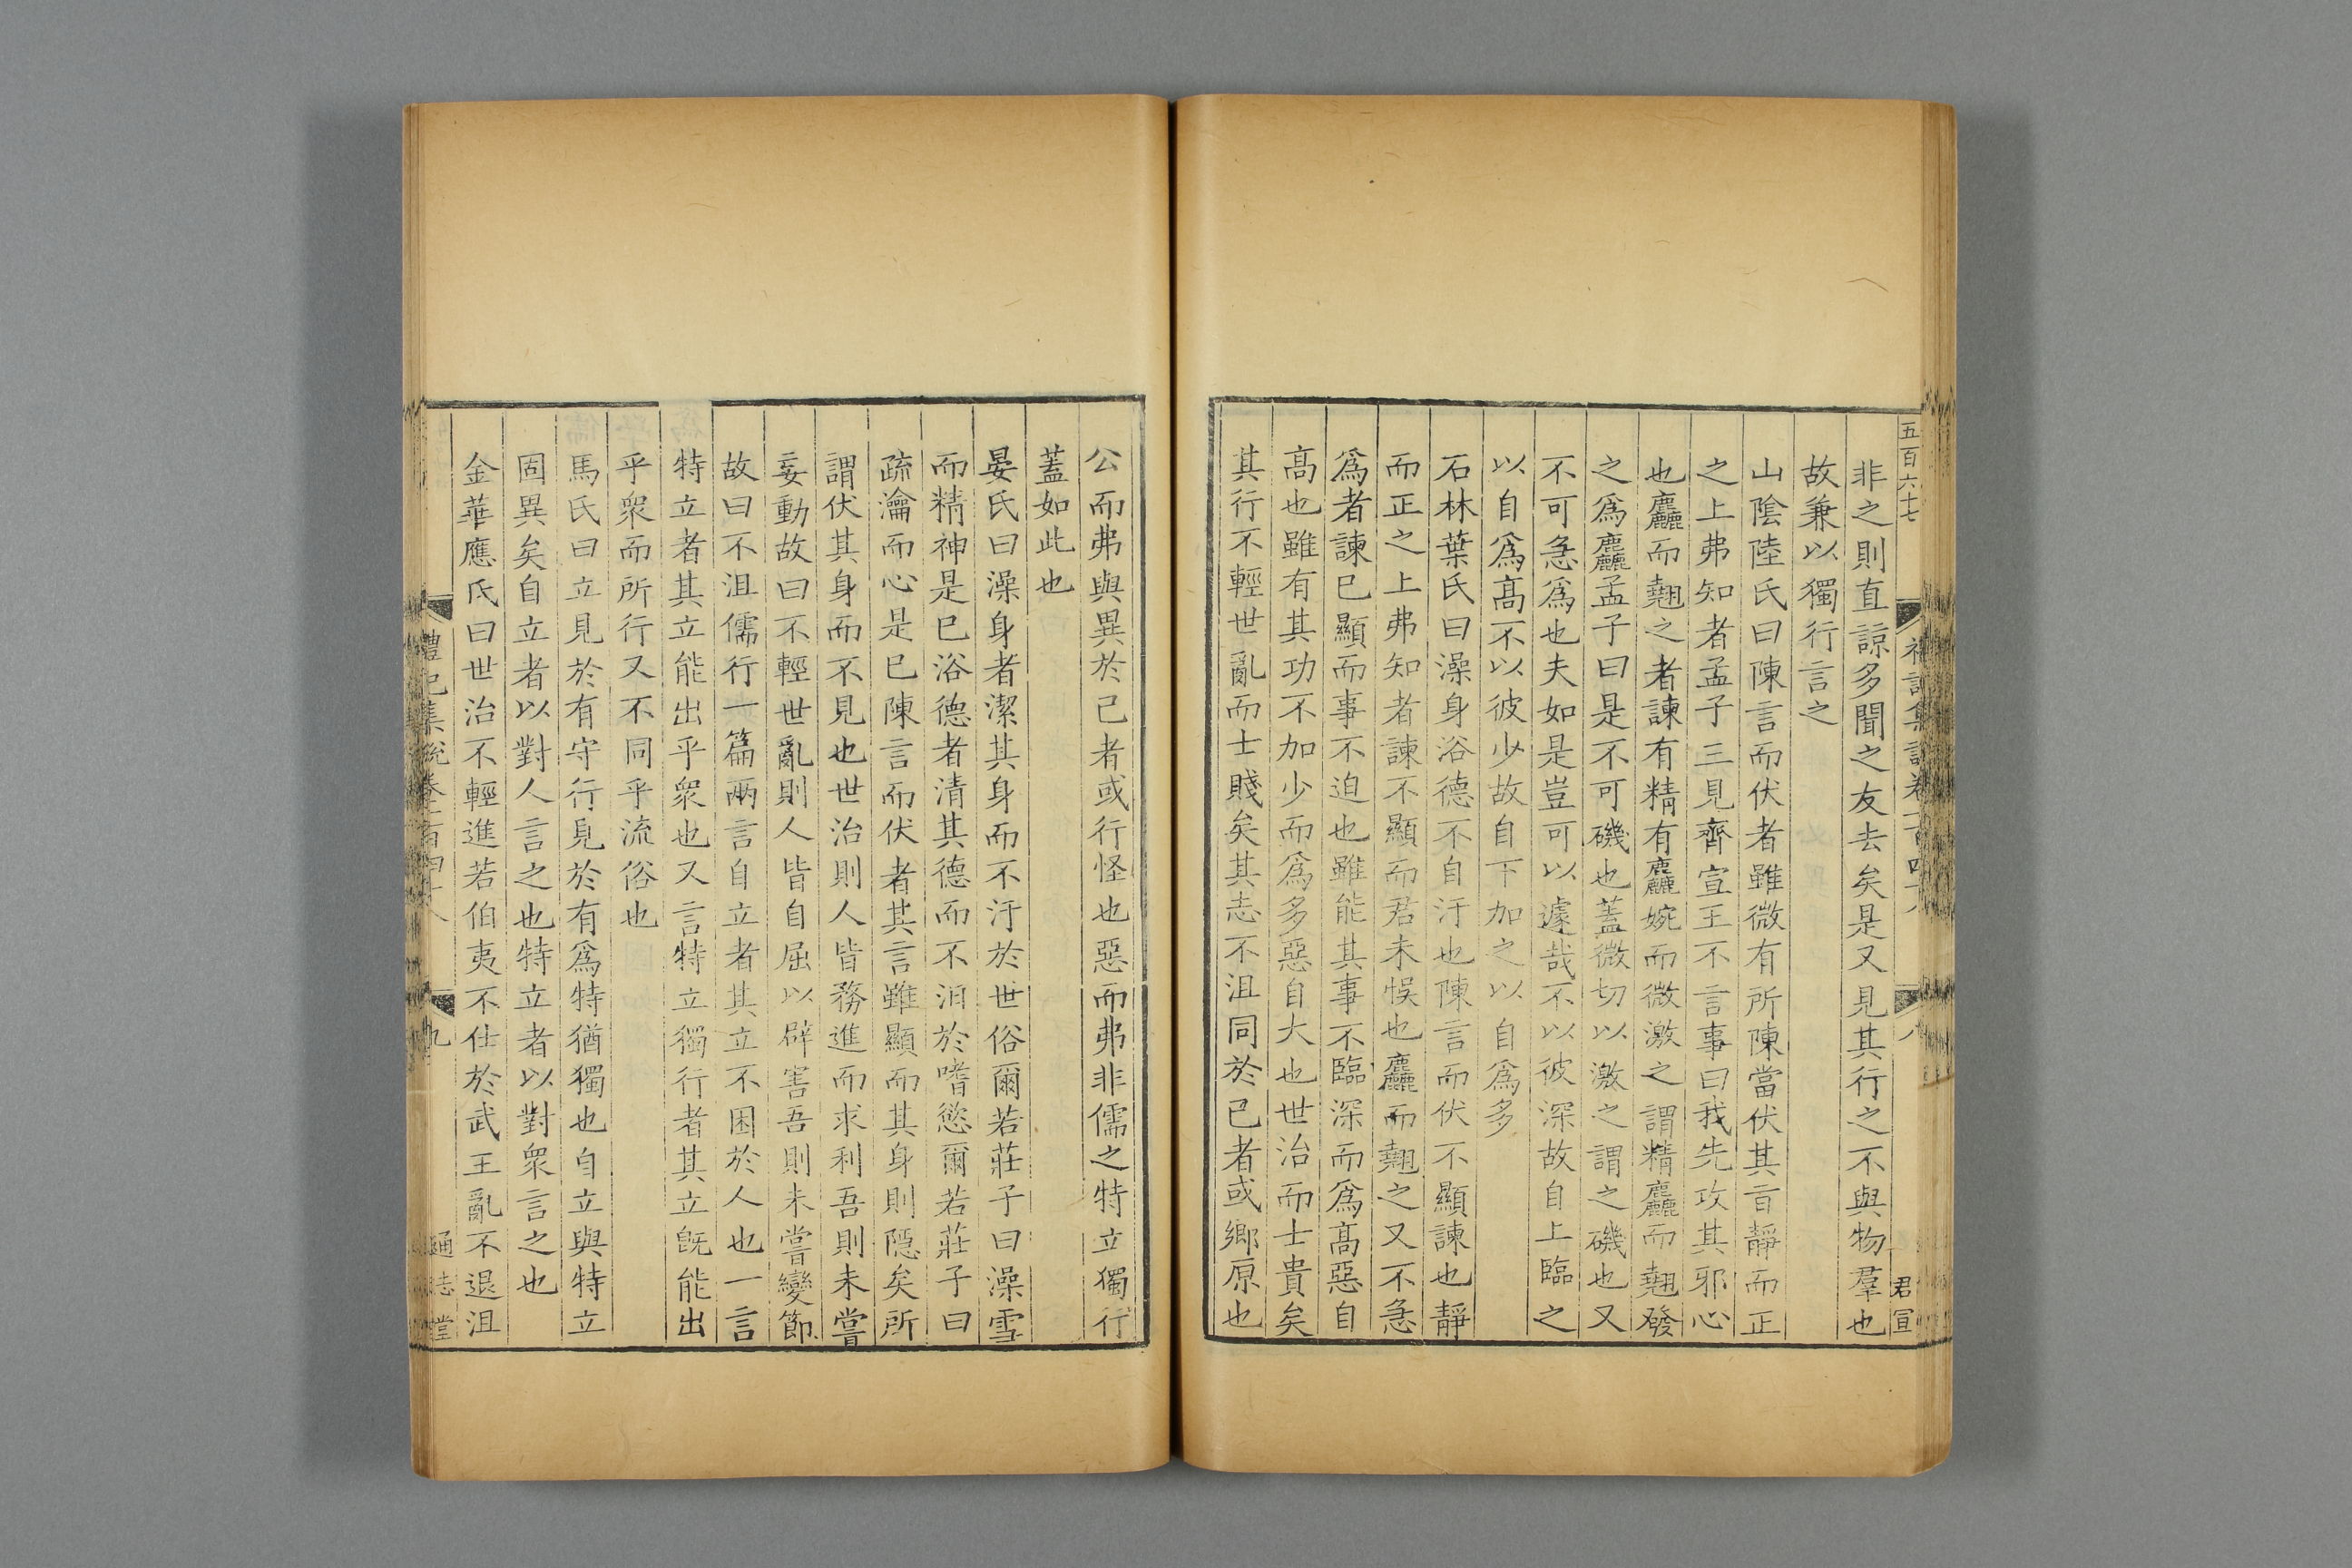 五百六十七
禮記集說卷一百四十八
八
君宣
非之則直諒多聞之友去矣是又見其行之不與物羣也
故兼以獨行言之
山陰陸氏曰陳言而伏者雖微有所陳當伏其言靜而正
之上弗知者孟子三見齊宣王不言事曰我先攻其邪心
也麤而翹之者諫有精有麤婉而微激之謂精麤而翹發
之爲麤孟子曰是不可磯也蓋微切以激之謂之磯也又
不可急爲也夫如是豈可以遽哉不以彼深故自上臨之
以自爲高不以彼少故自下加之以自爲多
石林葉氏曰澡身浴德不自汙也陳言而伏不顯諫也靜
而正之上弗知者諫不顯而君未悞也麤而翹之又不急
爲者諫已顯而事不迫也雖能其事不臨深而爲高惡自
高也雖有其功不加少而爲多惡自大也世治而士貴矣
其行不輕世亂而士賤矣其志不沮同於已者或鄉原也
公而弗與異於已者或行怪也惡而弗非儒之特立獨行
蓋如此也
晏氏曰澡身者潔其身而不汙於世俗爾若莊子曰澡雪
而精神是已浴德者清其德而不汩於嗜慾爾若莊子曰
疏瀹而心是已陳言而伏者其言雖顯而其身則隱矣所
謂伏其身而不見也世治則人皆務進而求利吾則未嘗
妄動故曰不輕世亂則人皆自屈以辟害吾則未嘗變節
故曰不沮儒行一篇兩言自立者其立不困於人也一言
特立者其立能出乎衆也又言特立獨行者其立旣能出
乎衆而所行又不同乎流俗也
馬氏曰立見於有守行見於有爲特猶獨也自立與特立
固異矣自立者以對人言之也特立者以對衆言之也
金華應氏曰世治不輕進若伯夷不仕於武王亂不退沮
禮記集說卷一百四十八
九
通志堂